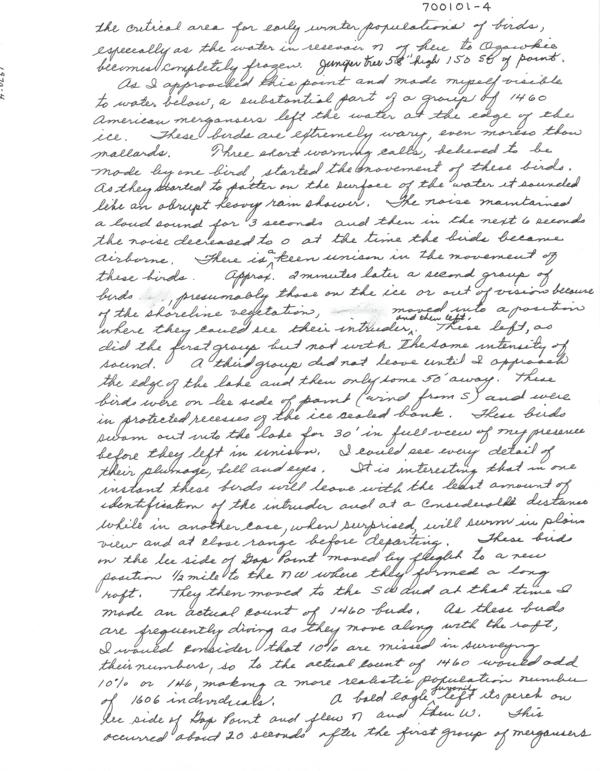 700101-4
the critical area for early winter populations of birds,
especially as the water in reservoir N of here to Ozawkie
becomes completely frozen. Juniper tree 58" high 150 SE of point.
As I approached this point and made myself visible
to water below, a substantial part of a group of 1460
American mergansers left the water at the edge of the
ice. These birds are extremely wary, even moreso than
mallards. Three short warning calls, believed to be
made by one bird, started the movement of these birds.
As they started to patter on the surface of the water it sounded
like an abrupt heavy rain shower. The noise maintained
a loud sound for 3 seconds and then in the next 6 seconds
the noise decreased to 0 at the time the birds became
airborne. There is a keen unison in the movement of
these birds. Approx. 2 minutes later a second group of
birds, presumably those on the ice or out of vision because
of the shoreline vegetation, moved into a position
where they could see their intruder and then left. These left, as
did the first group but not with the same intensity of
sound. A third group did not leave until I approach
the edge of the lake and then only some 50' away. These
birds were on lee side of point (wind from S) and were
in protected recesses of the ice sealed bank. These birds
swam out into the lake for 30' in full view of my presence
before they left in unison. I could see every detail of
their plumage, bill and eyes. It is interesting that in one
instant these birds will leave with the least amount of
identification of the intruder and at a considerable distance
while in another case, when surprised, will swim in plain
view and at close range before departing. These bird
on the lee side of Gap Point moved by flight to a new
position 1/2 mile to the NW where they formed a long
raft. They then moved to the SW and at that time I
made an actual count of 1460 birds. As these birds
are frequently diving as they move along with the raft,
I would consider that 10% are missed in surveying
their numbers, so to the actual count of 1460 would add
10% or 146, making a more realistic population number
of 1606 individuals. A bald eagle, juvenile left its perch on
lee side of Gap Point and flew N and then W. This
occurred about 20 seconds after the first group of mergansers